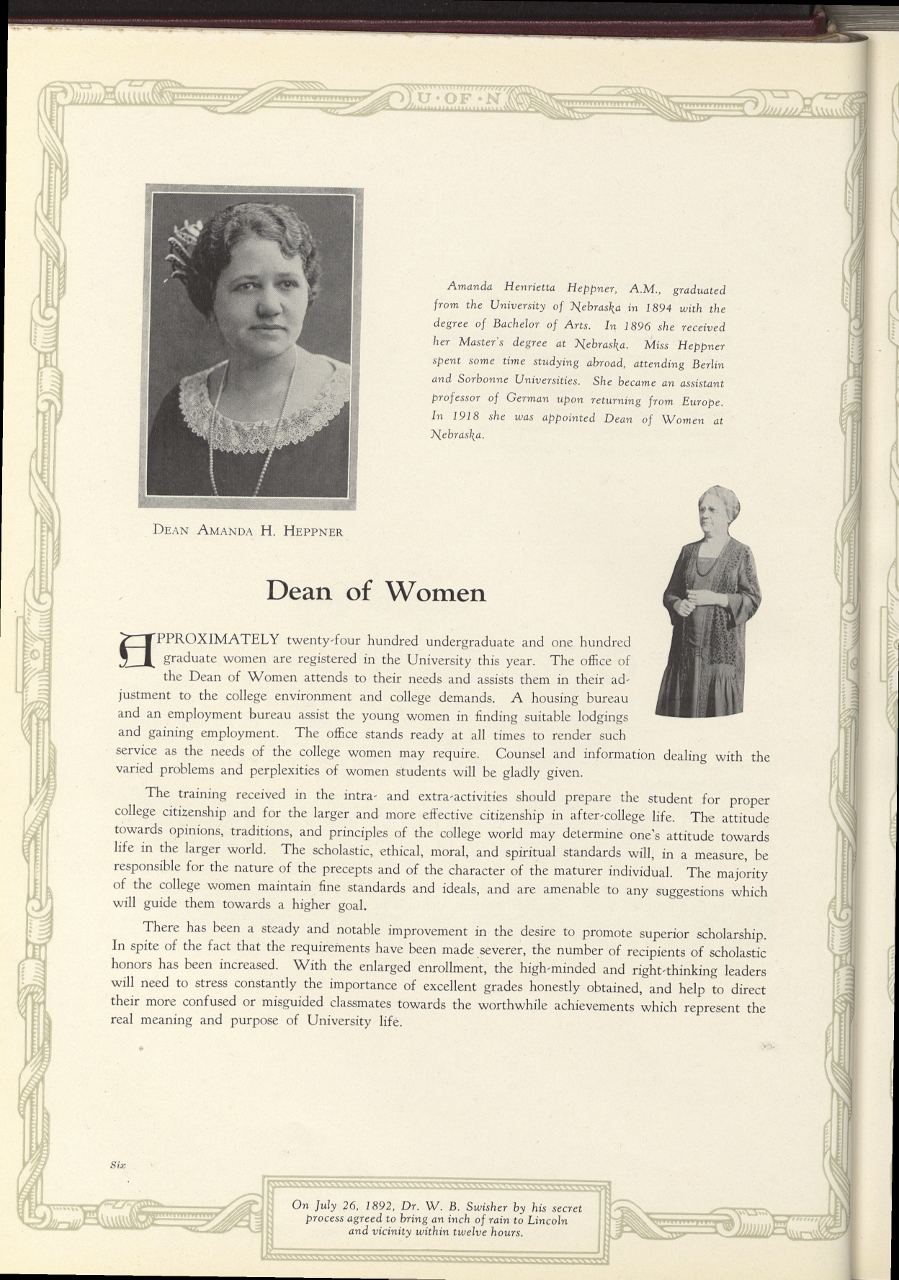 U·OF·N
Amanda Henrietta Heppner, A.M., graduated
from the University of Nebraska in 1894 with the
degree of Bachelor of Arts. In 1896 she received
her Master's degree at Nebraska. Miss Heppner
spent some time studying abroad, attending Berlin
and Sorbonne Universities. She became an assistant
professor of German upon returning from Europe.
In 1918 she was appointed Dean of Women at
Nebraska.
DEAN AMANDA H. HEPPNER
Dean of Women
APPROXIMATELY twenty-four hundred undergraduate and one hundred
graduate women are registered in the University this year. The office of
the Dean of Women attends to their needs and assists them in their ad-
justment to the college environment and college demands. A housing bureau
and an employment bureau assist the young women in finding suitable lodgings
and gaining employment. The office stands ready at all times to render such
service as the needs of the college women may require. Counsel and information dealing with the
varied problems and perplexities of women students will be gladly given.
The training received in the intra- and extra-activities should prepare the student for proper
college citizenship and for the larger and more effective citizenship in after-college life. The attitude
towards opinions, traditions, and principles of the college world may determine one's attitude towards
life in the larger world. The scholastic, ethical, moral, and spiritual standards will, in a measure, be
responsible for the nature of the precepts and of the character of the maturer individual. The majority
of the college women maintain fine standards and ideals, and are amenable to any suggestions which
will guide them towards a higher goal.
There has been a steady and notable improvement in the desire to promote superior scholarship.
In spite of the fact that the requirements have been made severer, the number of recipients of scholastic
honors has been increased. With the enlarged enrollment, the high-minded and right-thinking leaders
will need to stress constantly the importance of excellent grades honestly obtained, and help to direct
their more confused or misguided classmates towards the worthwhile achievements which represent the
real meaning and purpose of University life.
Six
On July 26, 1892, Dr. W. B. Swisher by his secret
process agreed to bring an inch of rain to Lincoln
and vicinity within twelve hours.